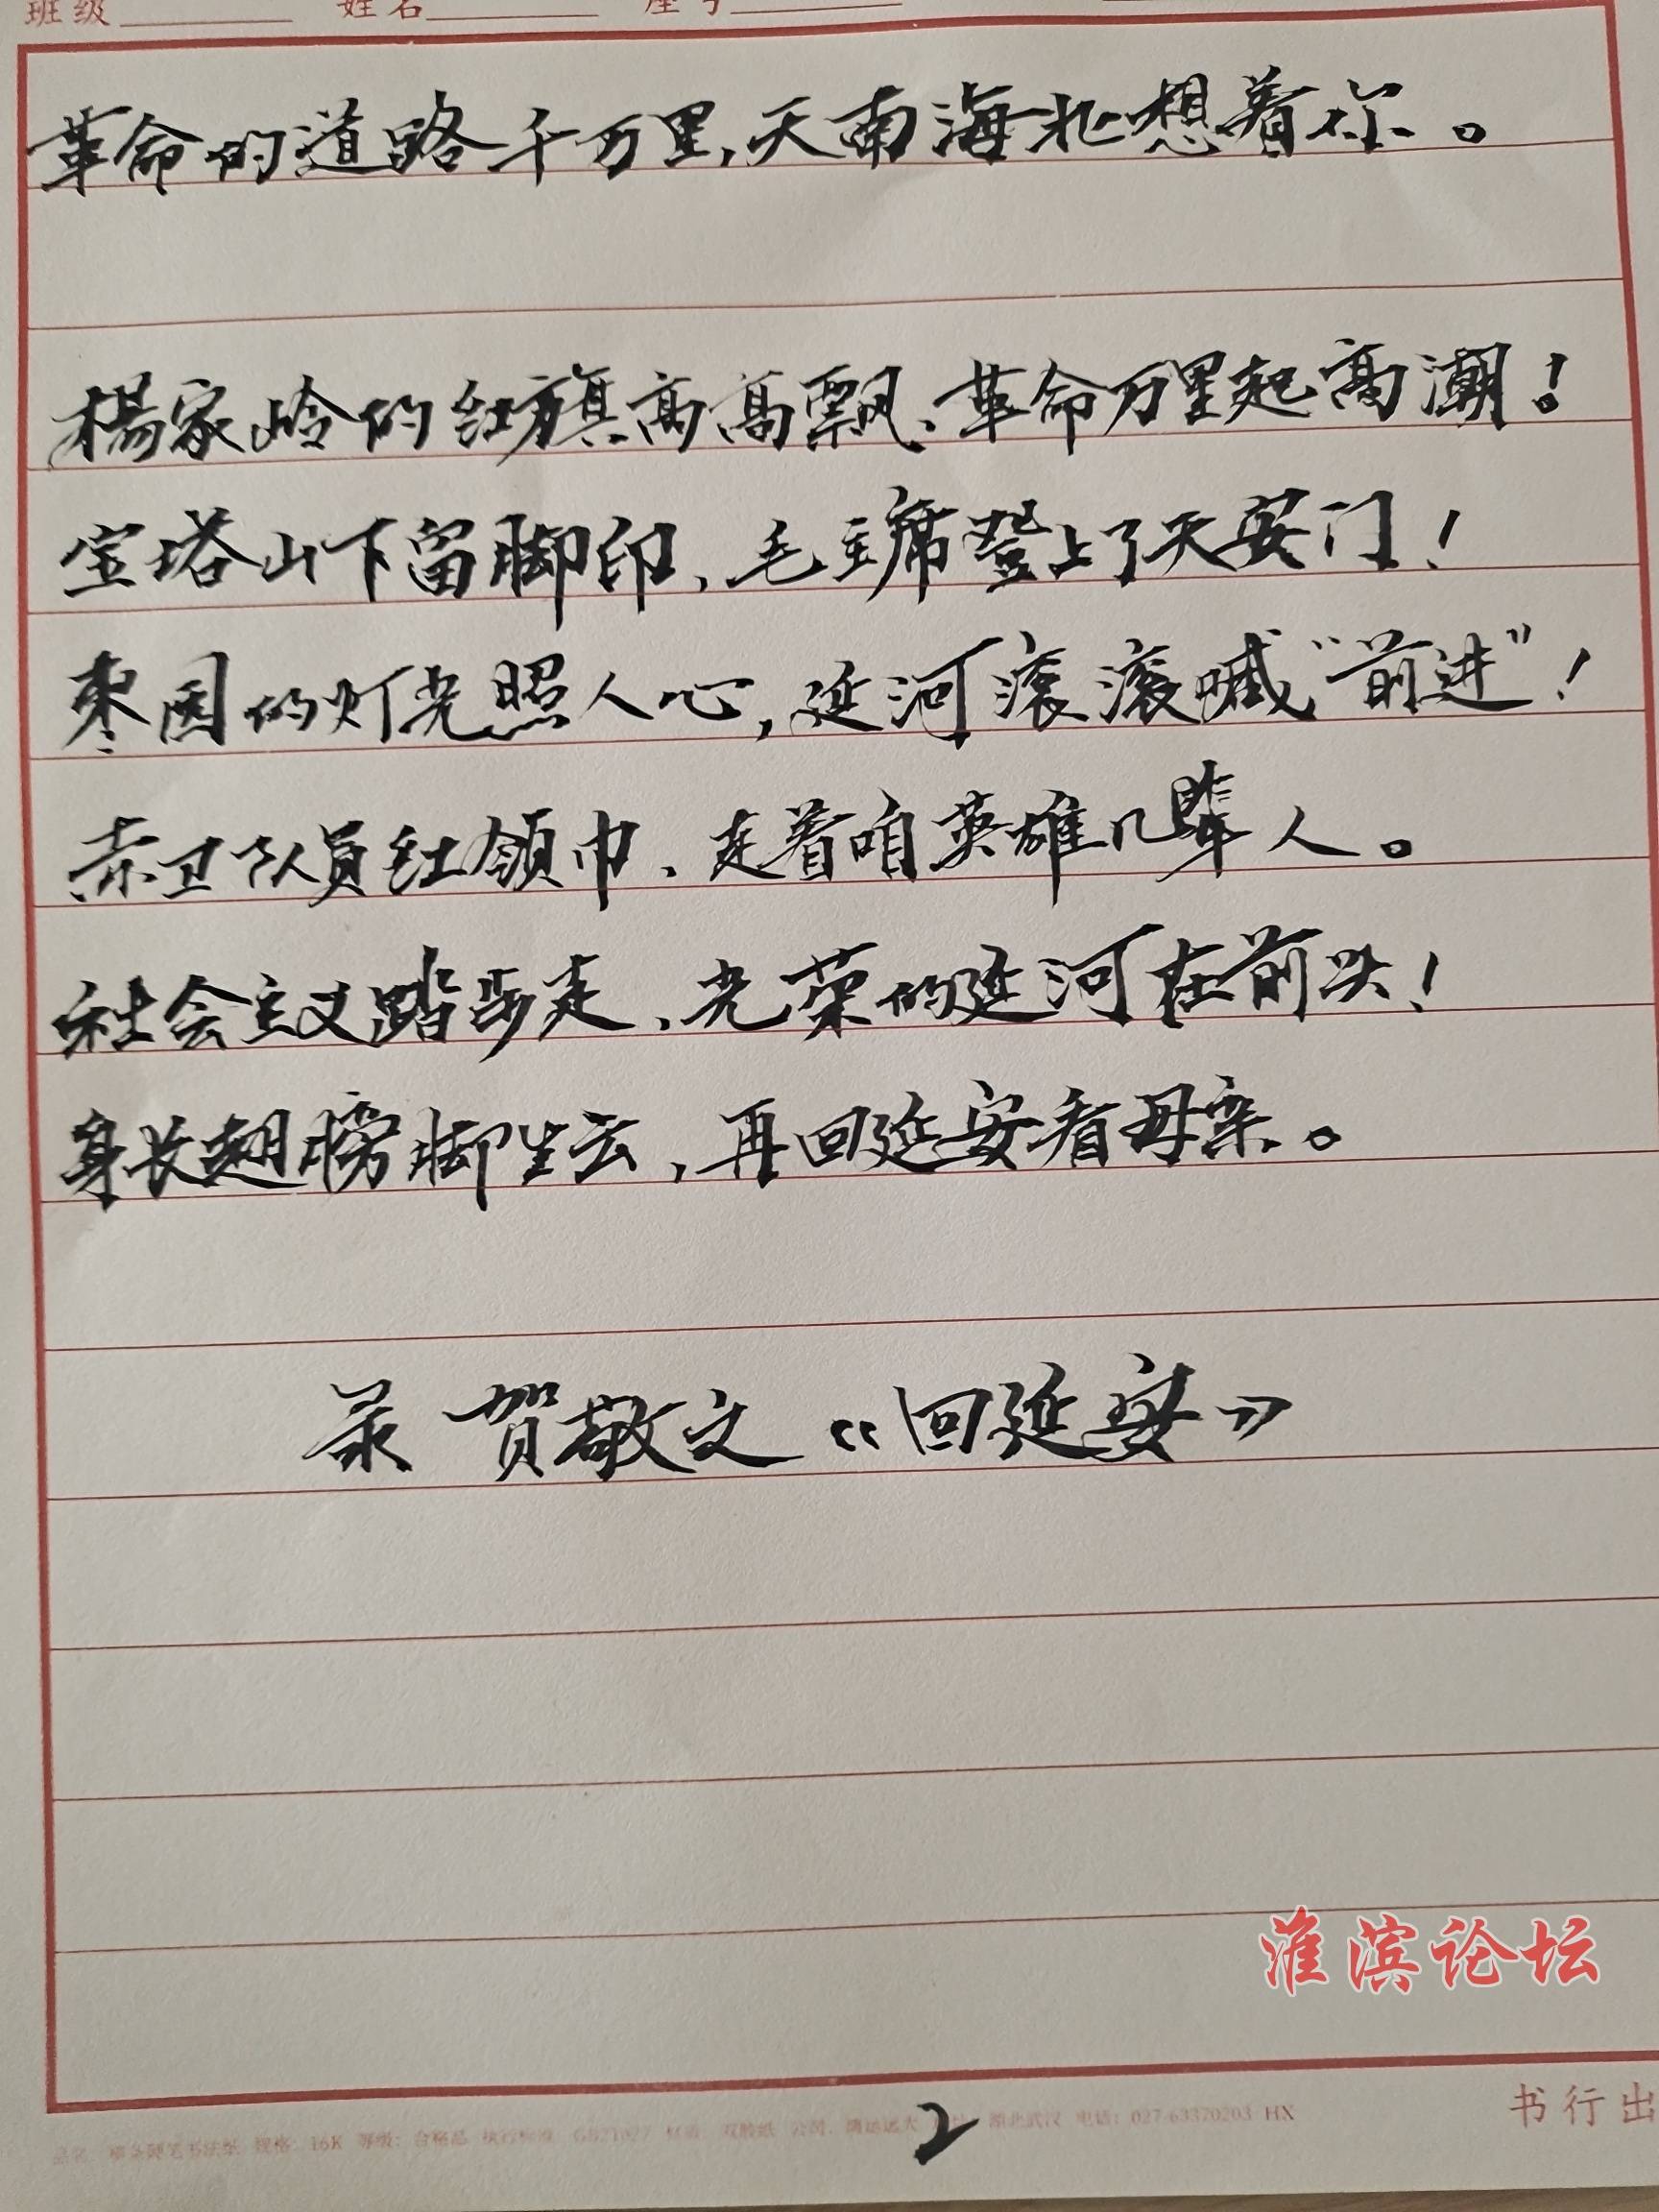 班级 姓名 座号
革命的道路千万里,天南海北想着你。
杨家岭的红旗高高飘、革命万里起高潮！
宝塔山下留脚印、毛主席登上了天安门！
枣园的灯光照人心,延河滚滚喊“前进”！
赤卫队员红领巾、走着咱英雄几辈人。
社会主义踏步走、光荣的延河在前头！
身长翅膀脚生云,再回延安看母亲。
录 贺敬文《回延安》
淮滨论坛
书行出
规格: 16K 等级: 合格品 湖北武汉 电话: 027-63370203 HX
2